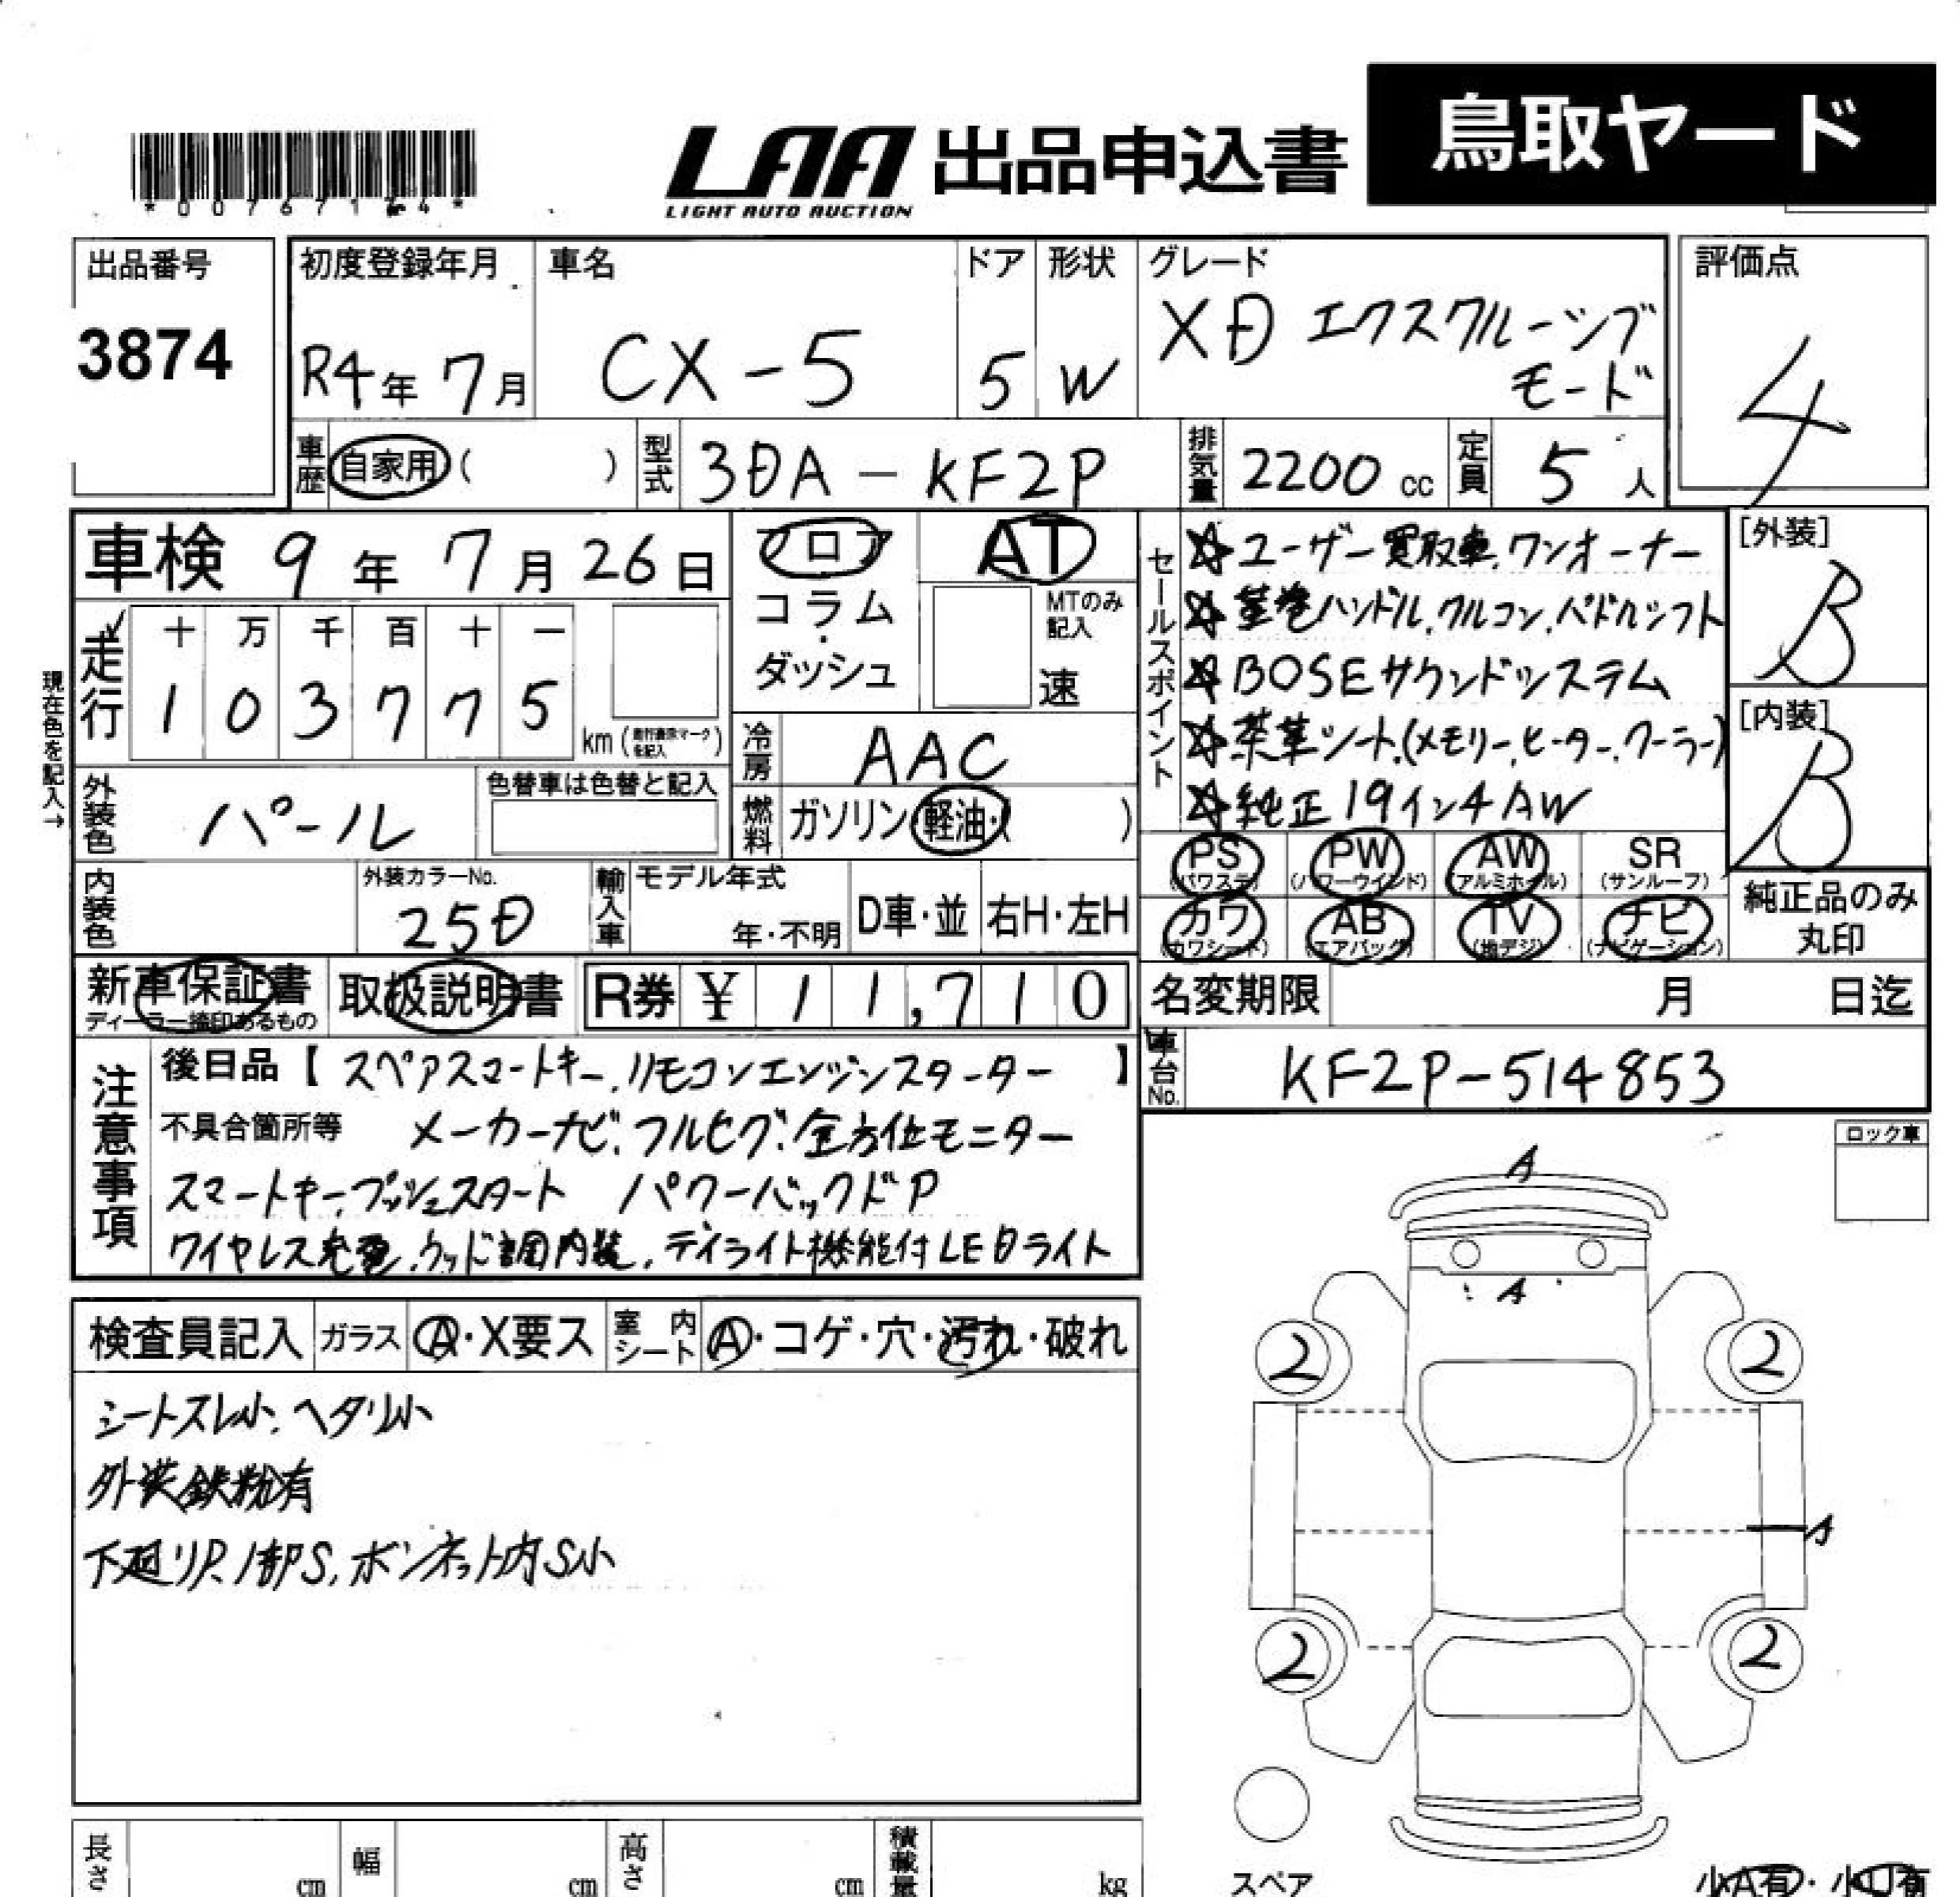 鳥取ヤード
LAA 出品申込書
LIGHT AUTO AUCTION
出品番号
3874
初度登録年月
R4年 7月
車名
CX-5
ドア
5
形状
W
グレード
XD エクスクルーシブ
モード
評価点
4
車歴 自家用 ( )
型式 3DA-KF2P
排気量 2200 cc
定員 5 人
車検 9年 7月 26日
フロア
コラム
・
ダッシュ
AT
MTのみ
記入
速
走行
十 万 千 百 十 一
1 0 3 7 7 5
km (走行表示マークを記入)
現在色を記入→
冷房 AAC
外装色 パール
色替車は色替と記入
燃料 ガソリン・軽油・( )
内装色
外装カラーNo.
25D
輸入車
モデル年式
年・不明
D車・並
右H・左H
セールスポイント
☆ユーザー買取車、ワンオーナー
☆革巻ハンドル、クルコン、パドルシフト
☆BOSEサウンドシステム
☆茶革シート、(メモリー、ヒーター、クーラー)
☆純正19インチAW
[外装]
B
[内装]
B
PS (パワステ)
PW (パワーウインド)
AW (アルミホイル)
SR (サンルーフ)
カワ (カワシート)
AB (エアバック)
TV (地デジ)
ナビ (ナビゲーション)
純正品のみ
丸印
新車保証書
ディーラー捺印あるもの
取扱説明書
R券 ¥ 11,710
名変期限 月 日迄
車台No. KF2P-514853
注意事項
後日品【スペアスマートキー、リモコンエンジンスターター】
不具合箇所等 メーカーナビ、フルセグ、全方位モニター
スマートキー、プッシュスタート パワーバックドア
ワイヤレス充電、ウッド調内装、デイライト機能付LEDライト
ロック車
検査員記入 ガラス A・X要ス 室内シート A・コゲ・穴・汚れ・破れ
シートスレ小、ヘタリ小
外装鉄粉有
下廻りP、1部S、ボンネット内S小
A
A
2
2
A
2
2
スペア
小A有・小U有
長さ cm
幅 cm
高さ cm
積載量 kg